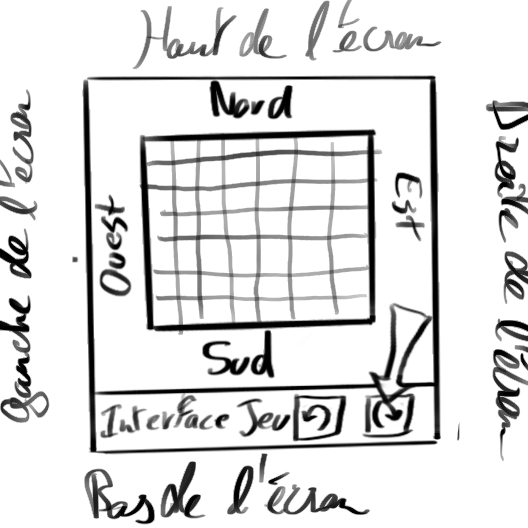 Haut de l'écran
Nord
gauche de l'écran
Ouest
Est
Droite de l'écran
Sud
Interface Jeu
Bas de l'écran